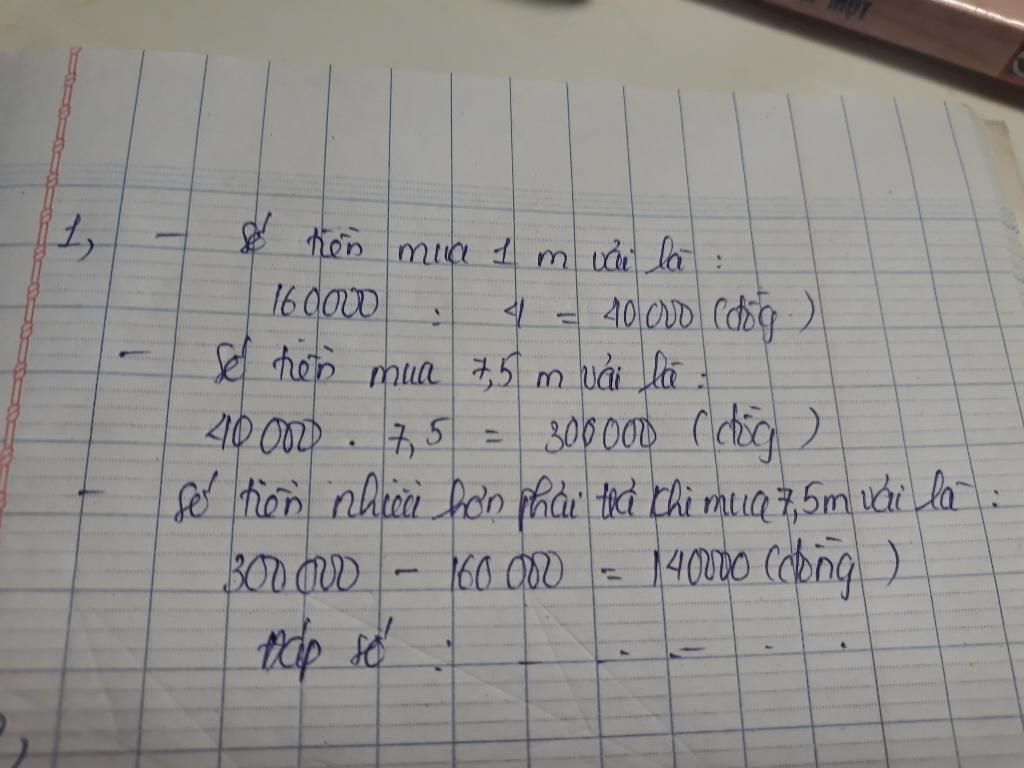 MỘT
1, - số tiền mua 1 m vải là :
160000 : 4 = 40000 (đồng)
- số tiền mua 7,5 m vải là :
40000 . 7,5 = 300000 (đồng)
- số tiền nhiều hơn phải trả khi mua 7,5m vải là :
300000 - 160000 = 140000 (đồng)
Đáp số : - - - - .